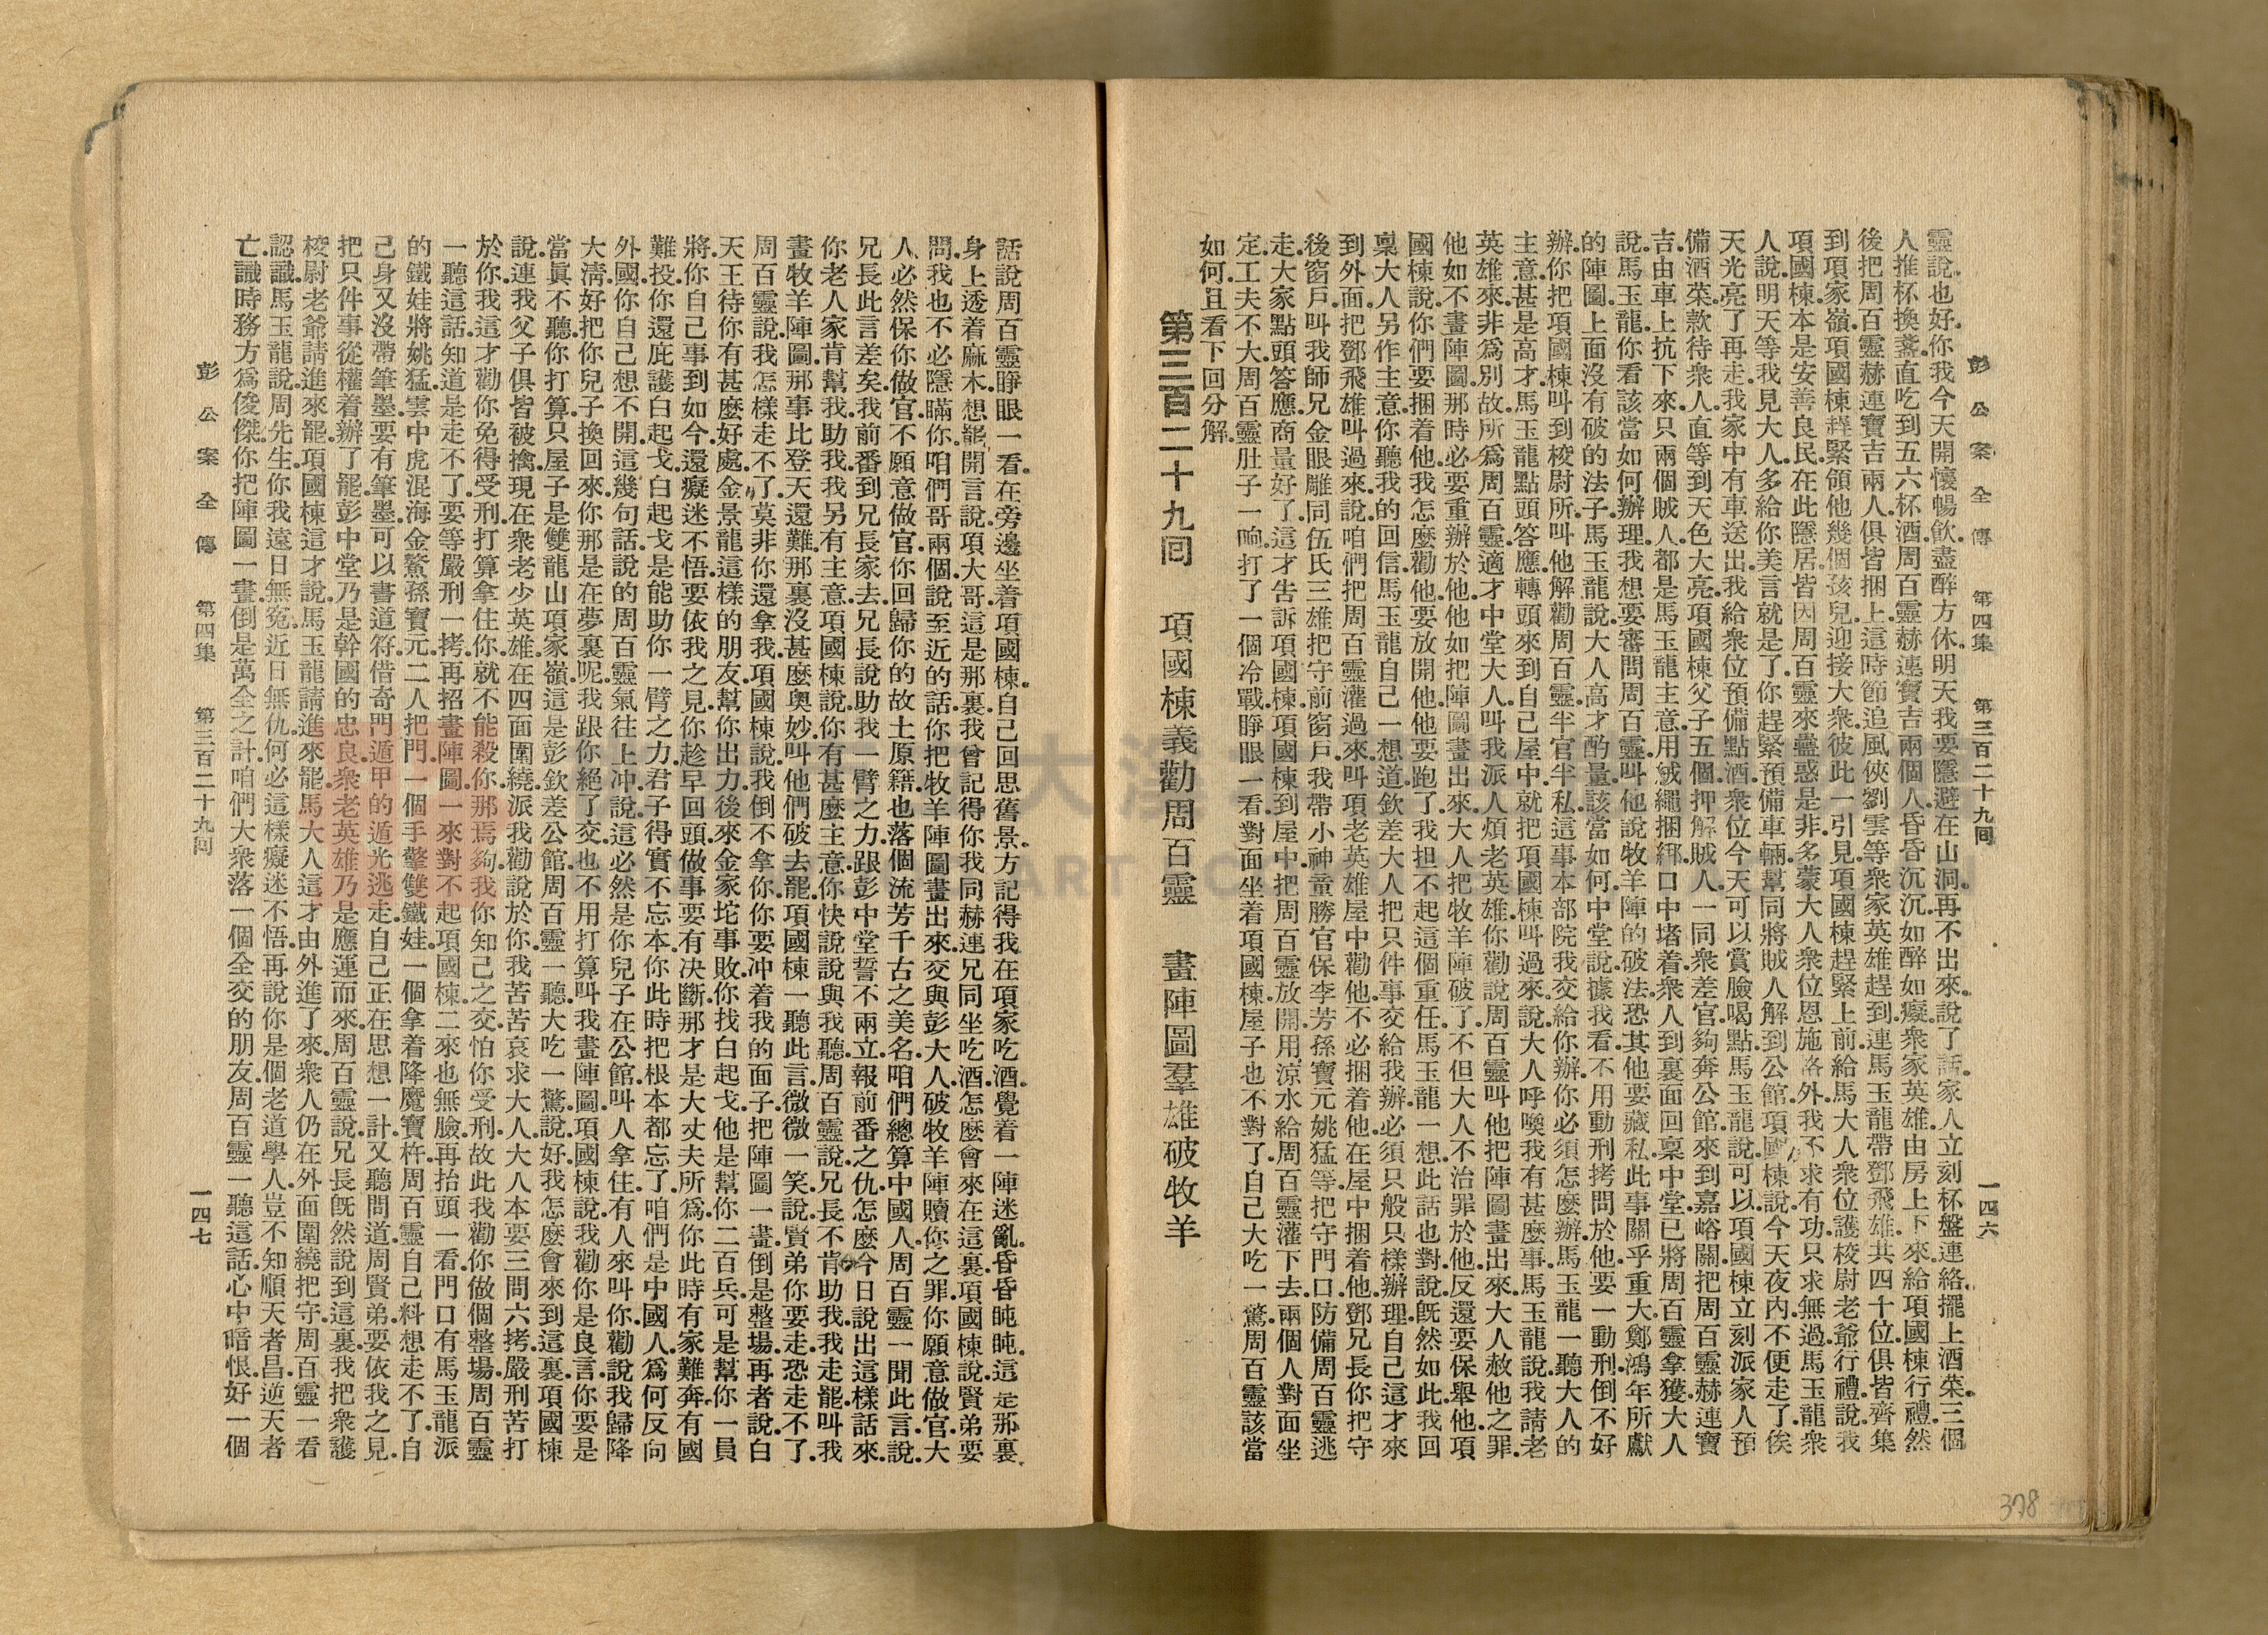 彭公案全傳　第四集　第三百二十九回　一四六
靈說.也好.你我今天開懷暢飲.盡醉方休.明天我要隱避在山洞.再不出來.說了話.家人立刻杯盤連絡.擺上酒菜.三個
人推杯換盞.直吃到五六杯酒.周百靈赫連寶吉兩個人.昏昏沉沉.如醉如癡.衆家英雄.由房上下來.給項國棟行禮.然
後把周百靈赫連寶吉兩人.俱皆捆上.這時節追風俠劉雲等衆家英雄趕到.連馬玉龍帶鄧飛雄.共四十位.俱皆齊集
到項家嶺.項國棟趕緊領他幾個孩兒.迎接大衆.彼此一引見.項國棟趕緊上前給馬大人衆位護校尉老爺行禮.說我
項國棟.本是安善良民.在此隱居.皆因周百靈來蠱惑是非.多蒙大人衆位恩施格外.我不求有功.只求無過.馬玉龍衆
人說.明天等我見大人.多給你美言就是了.你趕緊預備車輛.幫同將賊人解到公館.項國棟說.今天夜內不便走了.俟
天光亮了再走.我家中有車送出.我給衆位預備點酒.衆位今天可以賞臉喝點.馬玉龍說.可以.項國棟立刻派家人預
備酒菜.款待衆人.直等到天色大亮.項國棟父子五個.押解賊人.一同衆差官.夠奔公館.來到嘉峪關.把周百靈赫連寶
吉.由車上抗下來.只兩個賊人.都是馬玉龍主意.用絨繩捆綁.口中堵着.衆人到裏面回稟中堂.已將周百靈拿獲.大人
說.馬玉龍.你看該當如何辦理.我想要審問周百靈.叫他說牧羊陣的破法.恐其他要藏私.此事關乎重大.鄭鴻年所獻
的陣圖.上面沒有破的法子.馬玉龍說.大人高才酌量.該當如何.中堂說.據我看.不用動刑拷問於他.要一動刑.倒不好
辦.你把項國棟叫到校尉所.叫他解勸周百靈.半官半私.這事本部院我交給你辦.你必須怎麼辦.馬玉龍一聽大人的
主意.甚是高才.馬玉龍點頭答應.轉頭來到自己屋中.就把項國棟叫過來.說.大人呼喚我有甚麼事.馬玉龍說.我請老
英雄來.非爲別故.所爲周百靈.適才中堂大人.叫我派人煩老英雄.你勸說周百靈.叫他把陣圖畫出來.大人赦他之罪.
他如不畫陣圖.那時必要重辦於他.他如把陣圖畫出來.大人把牧羊陣破了.不但大人不治罪於他.反還要保舉他.項
國棟說.你們要捆着他.我怎麼勸他.要放開他.他要跑了.我担不起這個重任.馬玉龍一想.此話也對.說.旣然如此.我回
稟大人另作主意.你聽我的回信.馬玉龍自己一想.道.欽差大人把只件事交給我辦.必須只般只樣辦理.自己這才來
到外面.把鄧飛雄叫過來.說.咱們把周百靈灌過來.叫項老英雄屋中勸他.不必捆着他.在屋中捆着他.鄧兄長你把守
後窗戶.叫我師兄金眼雕同伍氏三雄把守前窗戶.我帶小神童勝官保李芳孫寶元姚猛等.把守門口.防備周百靈逃
走.大家點頭答應.商量好了.這才告訴項國棟.項國棟到屋中.把周百靈放開.用涼水給周百靈灌下去.兩個人對面坐
定.工夫不大.周百靈肚子一响.打了一個冷戰.睜眼一看.對面坐着項國棟.屋子也不對了.自己大吃一驚.周百靈該當
如何.且看下回分解.
第三百二十九回　項國棟義勸周百靈　畫陣圖羣雄破牧羊
話說周百靈睜眼一看.在旁邊坐着項國棟.自己回思舊景.方記得我在項家吃酒.覺着一陣迷亂.昏昏盹盹.這是那裏.
身上透着麻木.想罷.開言說.項大哥.這是那裏.我曾記得你我同赫連兄同坐吃酒.怎麼會來在這裏.項國棟說.賢弟要
問.我也不必隱瞞你.咱們哥兩個說至近的話.你把牧羊陣圖畫出來.交與彭大人破牧羊陣.贖你之罪.你願意做官.大
人必然保你做官.不願意做官.你回歸你的故土原籍.也落個流芳千古之美名.咱們總算中國人.周百靈一聞此言.說.
兄長此言差矣.我前番到兄長家去.兄長說助我一臂之力.跟彭中堂誓不兩立.報前番之仇.怎麼今日說出這樣話來.
你老人家肯幫我助我.我另有主意.項國棟說.你有甚麼主意.你快說說與我聽.周百靈說.兄長不肯助我.我走罷.叫我
畫牧羊陣圖.那事比登天還難.那裏沒甚麼奧妙.叫他們破去罷.項國棟一聽此言.微微一笑.說.賢弟.你要走.恐走不了.
周百靈說.我怎樣走不了.莫非你還拿我.項國棟說.我倒不拿你.你要冲着我的面子.把陣圖一畫.倒是整場.再者說.白
天王待你有甚麼好處.金景龍這樣的朋友.幫你出力.後來金家坨事敗.你找白起戈.他是幫你二百兵.可是幫你一員
將.你自己事到如今.還癡迷不悟.要依我之見.你趁早回頭.做事要有決斷.那才是大丈夫所爲.你此時有家難奔.有國
難投.你還庇護白起戈.白起戈是能助你一臂之力.君子得實不忘本.你此時把根本都忘了.咱們是中國人.爲何反向
外國.你自己想不開.這幾句話.說的周百靈氣往上冲.說.這必然是你兒子在公館.叫人拿住.有人來叫你勸說我歸降
大淸.好把你兒子換回來.你那是在夢裏呢.我跟你絕了交.也不用打算叫我畫陣圖.項國棟說.我勸你是良言.你要是
當眞不聽.你打算只屋子是雙龍山項家嶺.這是彭欽差公館.周百靈一聽.大吃一驚.說.好.我怎麼會來到這裏.項國棟
說.連我父子俱皆被擒.現在衆老少英雄.在四面圍繞.派我勸說於你.我苦苦哀求大人.大人本要三問六拷.嚴刑苦打
於你.我這才勸你.免得受刑.打算拿住你.就不能殺你.那焉夠我你知己之交.怕你受刑.故此我勸你做個整場.周百靈
一聽這話.知道是走不了.要等嚴刑一拷再招畫陣圖.一來對不起項國棟.二來也無臉.再抬頭一看.門口有馬玉龍派
的鐵娃將姚猛.雲中虎混海金鰲孫寶元二人把門.一個手擎雙鐵娃.一個拿着降魔寶杵.周百靈自己料想走不了.自
己身又沒帶筆墨.要有筆墨.可以書道符.借奇門遁甲的遁光逃走.自己正在思想一計.又聽問道.周賢弟.要依我之見.
把只件事從權着辦了罷.彭中堂乃是幹國的忠良.衆老英雄乃是應運而來.周百靈說.兄長旣然說到這裏.我把衆護
校尉老爺請進來罷.項國棟這才說.馬玉龍請進來罷.馬大人這才由外進了來.衆人仍在外面圍繞把守.周百靈一看.
認識.馬玉龍說.周先生.你我遠日無冤.近日無仇.何必這樣癡迷不悟.再說你是個老道學人.豈不知順天者昌.逆天者
亡.識時務方爲俊傑.你把陣圖一畫.倒是萬全之計.咱們大衆落一個全交的朋友.周百靈一聽這話.心中暗恨.好一個
彭公案全傳　第四集　第三百二十九回　一四七
378